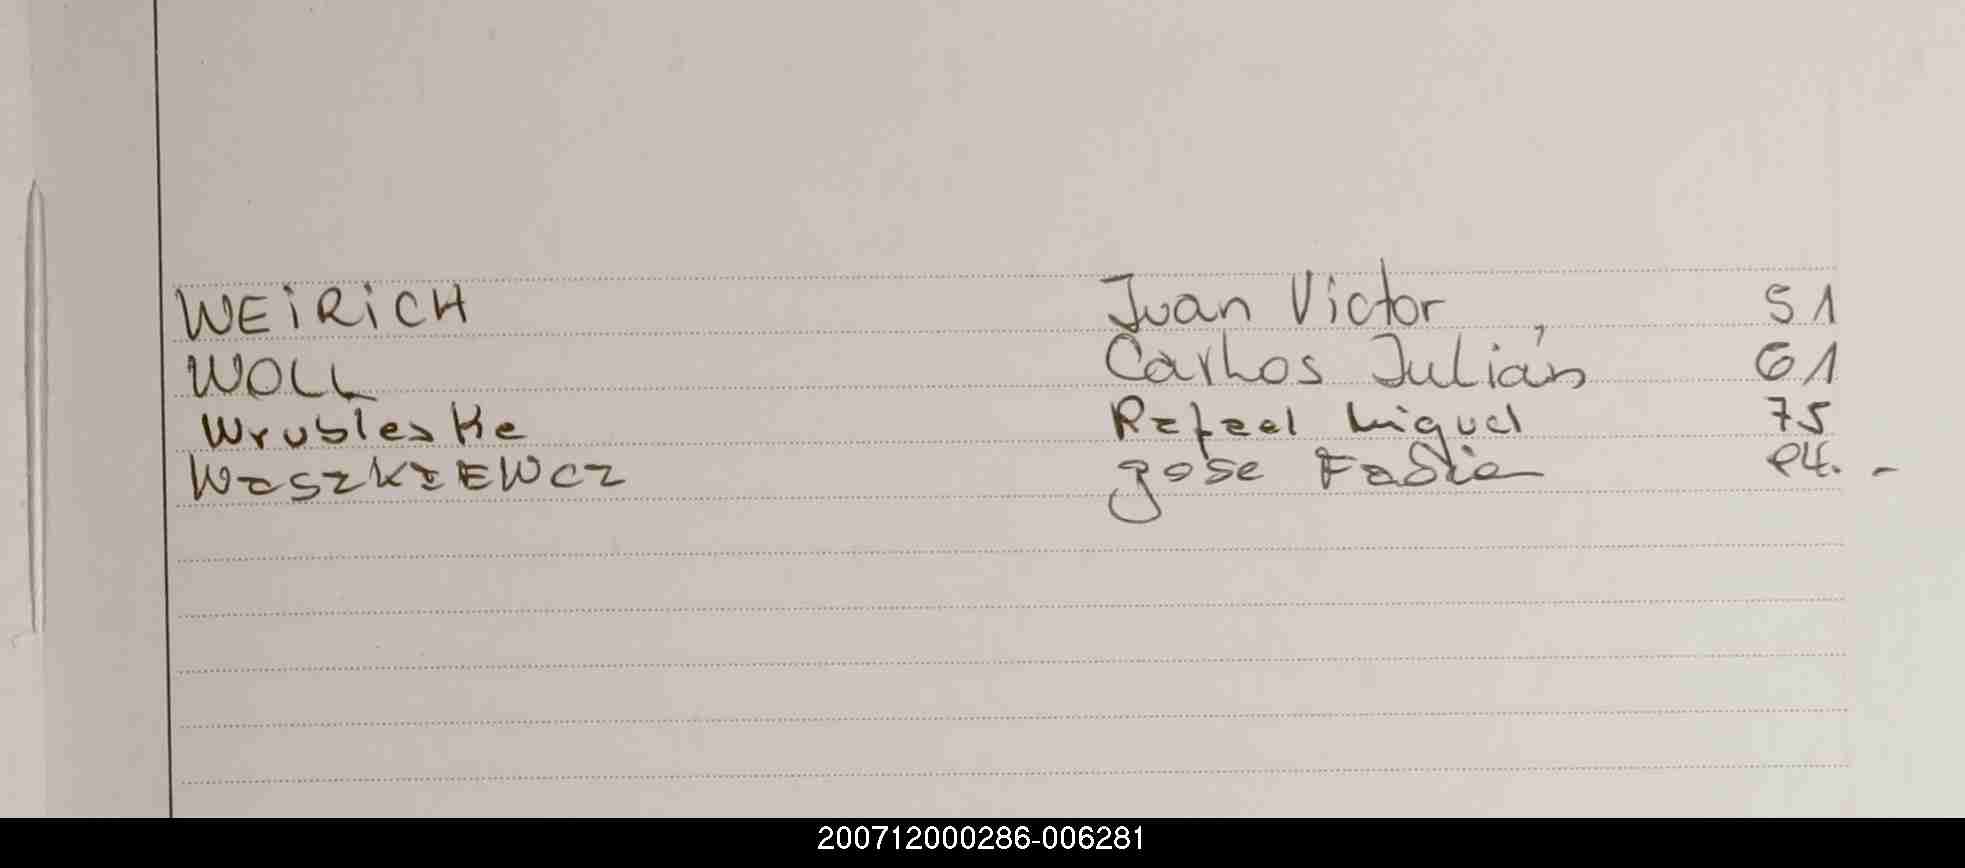 WEiRiCH Juan Victor 51
WOLL Carlos Julián 61
Wrubleske Rafael Miguel 75
WaszKIEWCZ Jose Fabia
200712000286-006281